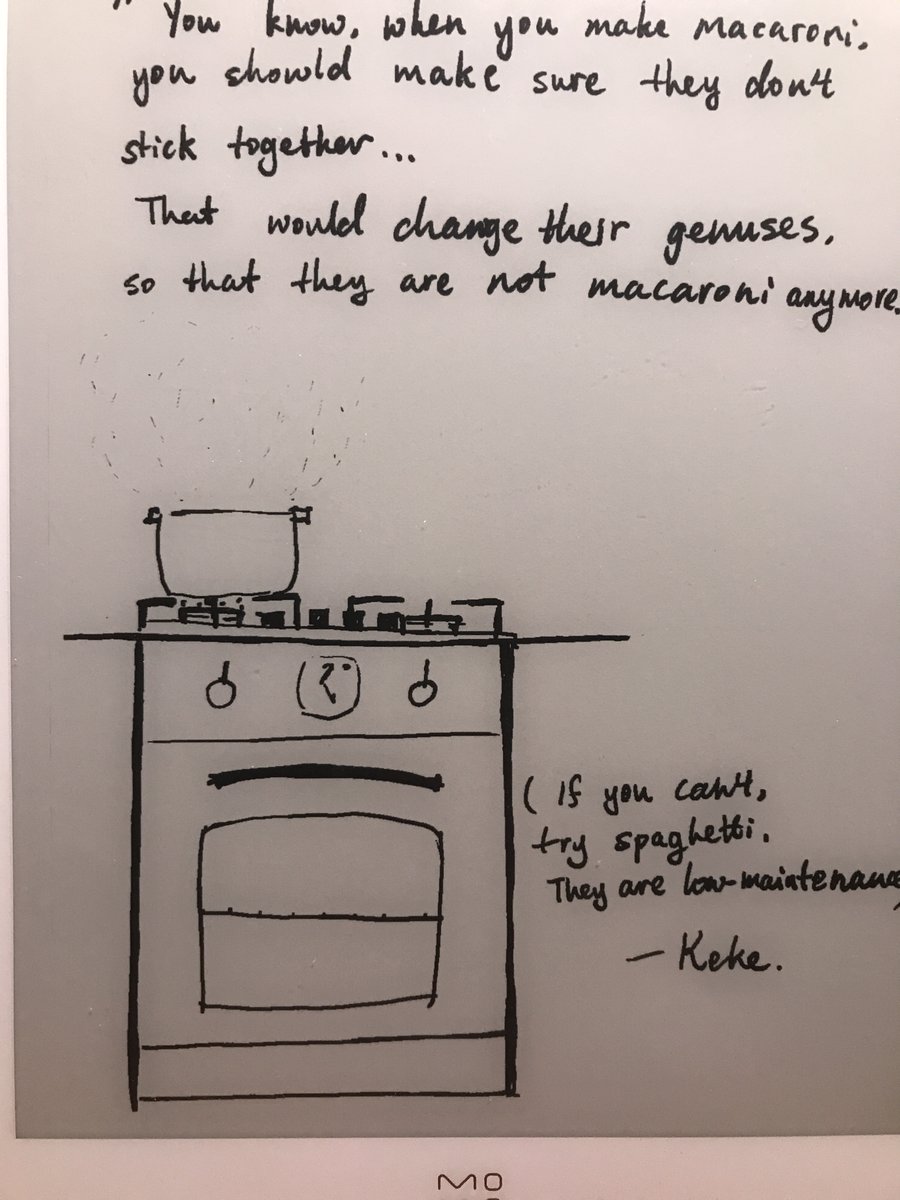 " You know, when you make macaroni.
you should make sure they don't
stick together...
That would change their genuses,
so that they are not macaroni anymore.
( If you can't,
try spaghetti.
They are low-maintenance
— Keke.
MO